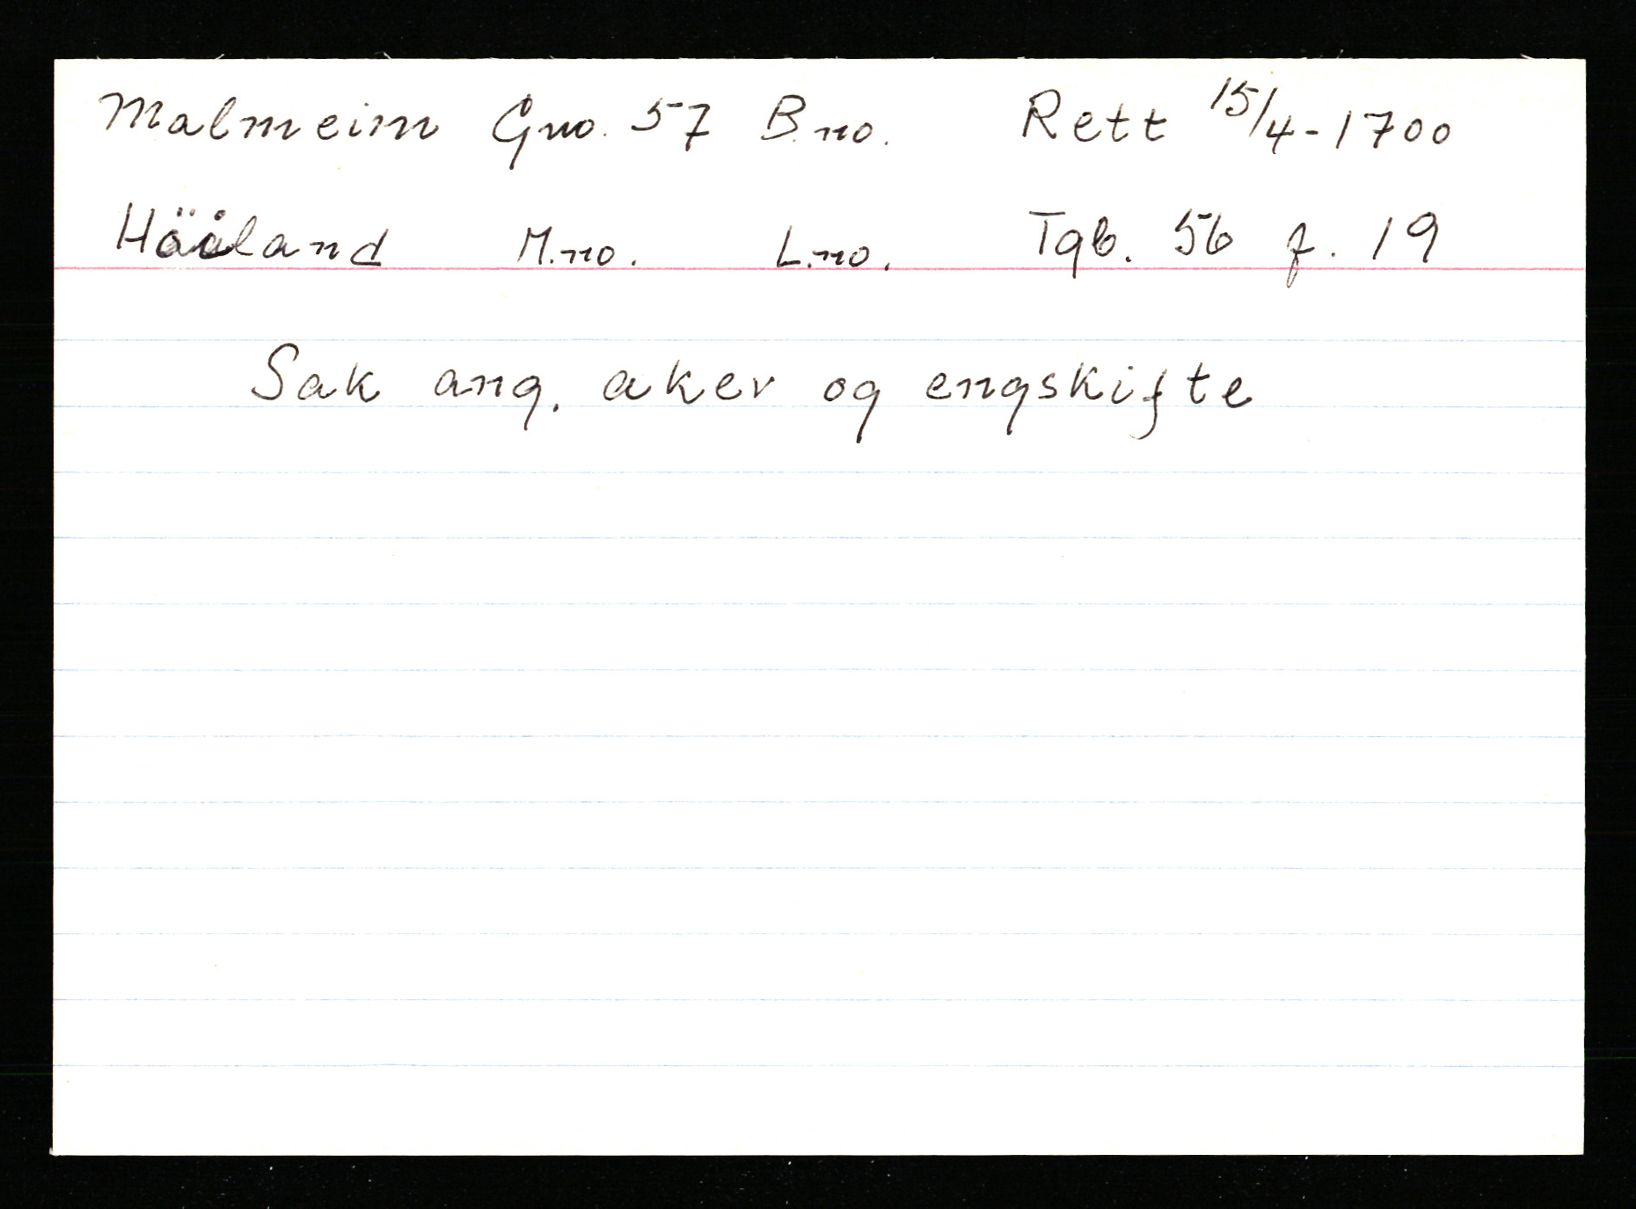 Malmeim Gno. 57 B.no. Rett 15/4-1700
Hååland M.no. L.no. Tgb. 56 f. 19
Sak ang. aker og engskifte